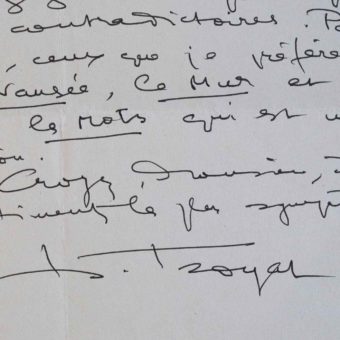 contradictoires. Pa
, ceux que je préfère
Nausée, Le Mur et
les Mots qui est u
Croyez, Monsieur,
timents les plus sympa
H. Troyat